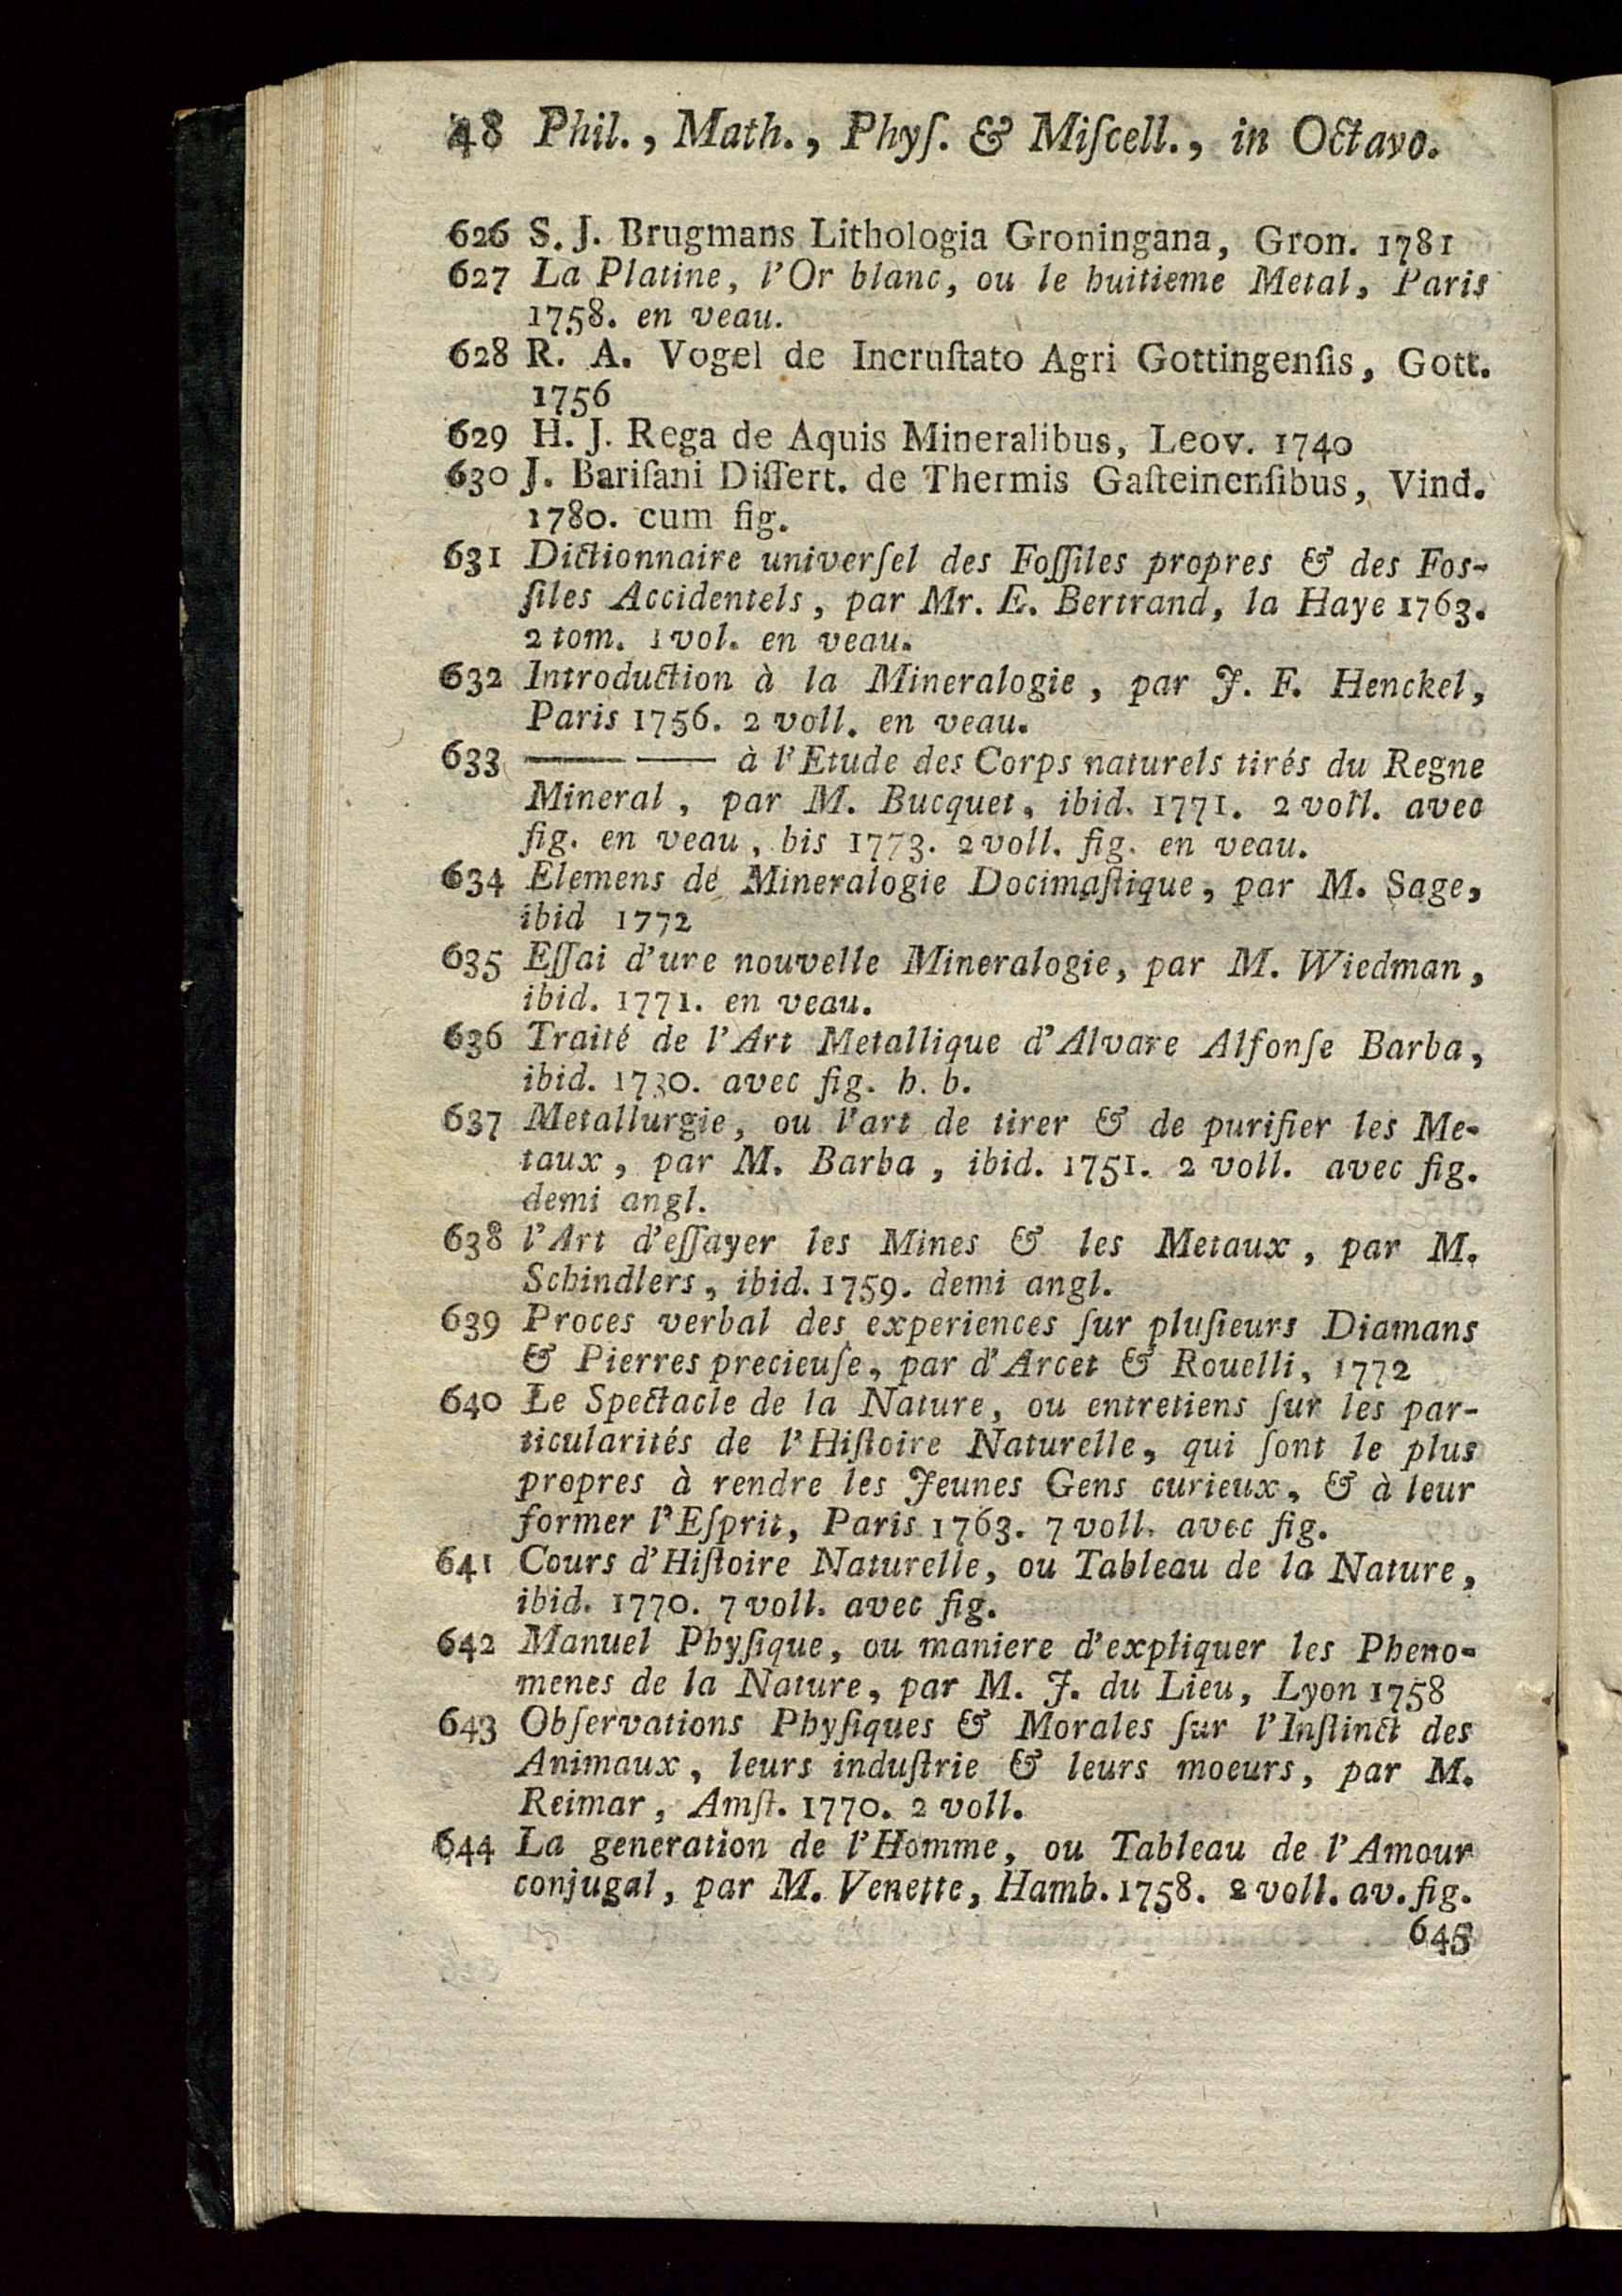 48 Phil., Math., Phyſ. & Miſcell., in Octavo.
626 S. J. Brugmans Lithologia Groningana, Gron. 1781
627 La Platine, l'Or blanc, ou le huitieme Metal, Paris
1758. en veau.
628 R. A. Vogel de Incruſtato Agri Gottingenſis, Gott.
1756
629 H. J. Rega de Aquis Mineralibus, Leov. 1740
630 J. Bariſani Diſſert. de Thermis Gaſteinenſibus, Vind.
1780. cum fig.
631 Dictionnaire univerſel des Foſſiles propres & des Fos-
ſiles Accidentels, par Mr. E. Bertrand, la Haye 1763.
2 tom. 1 vol. en veau.
632 Introduction à la Mineralogie, par J. F. Henckel,
Paris 1756. 2 voll. en veau.
633 —— —— à l'Etude des Corps naturels tirés du Regne
Mineral, par M. Bucquet, ibid. 1771. 2 voll. avec
fig. en veau, bis 1773. 2 voll. fig. en veau.
634 Elemens de Mineralogie Docimaſtique, par M. Sage,
ibid 1772
635 Eſſai d'ure nouvelle Mineralogie, par M. Wiedman,
ibid. 1771. en veau.
636 Traité de l'Art Metallique d'Alvare Alfonſe Barba,
ibid. 1730. avec fig. h. b.
637 Metallurgie, ou l'art de tirer & de purifier les Me-
taux, par M. Barba, ibid. 1751. 2 voll. avec fig.
demi angl.
638 l'Art d'eſſayer les Mines & les Metaux, par M.
Schindlers, ibid. 1759. demi angl.
639 Proces verbal des experiences ſur pluſieurs Diamans
& Pierres precieuſe, par d'Arcet & Rouelli, 1772
640 Le Spectacle de la Nature, ou entretiens ſur les par-
ticularités de l'Hiſtoire Naturelle, qui ſont le plus
propres à rendre les Jeunes Gens curieux, & à leur
former l'Eſprit, Paris 1763. 7 voll. avec fig.
641 Cours d'Hiſtoire Naturelle, ou Tableau de la Nature,
ibid. 1770. 7 voll. avec fig.
642 Manuel Phyſique, ou maniere d'expliquer les Pheno-
menes de la Nature, par M. J. du Lieu, Lyon 1758
643 Obſervations Phyſiques & Morales ſur l'Inſtinct des
Animaux, leurs induſtrie & leurs moeurs, par M.
Reimar, Amſt. 1770. 2 voll.
644 La generation de l'Homme, ou Tableau de l'Amour
conjugal, par M. Venette, Hamb. 1758. 2 voll. av. fig.
645